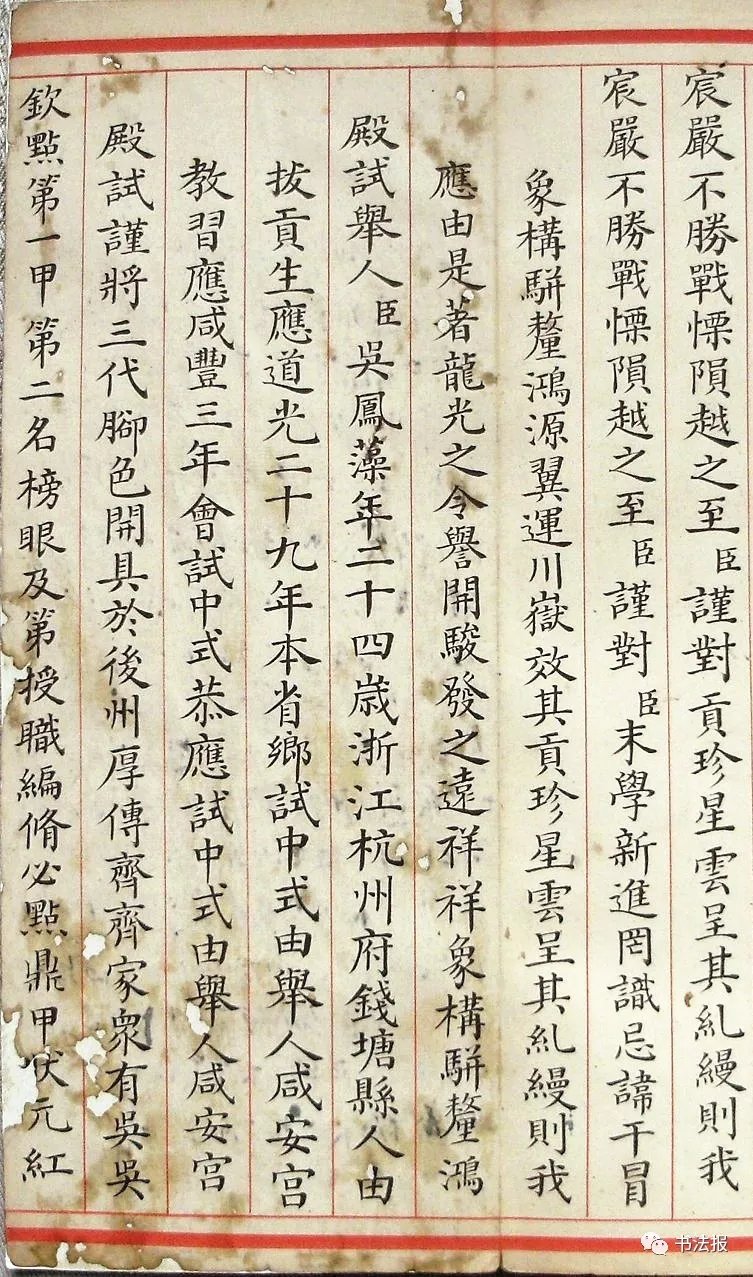 宸嚴不勝戰慄隕越之至臣謹對貢珍星雲呈其糺縵則我
宸嚴不勝戰慄隕越之至臣謹對臣末學新進罔識忌諱干冒
象構駢釐鴻源翼運川嶽效其貢珍星雲呈其糺縵則我
應由是著龍光之令譽開駿發之遠祥祥象構駢釐鴻
殿試舉人臣吳鳳藻年二十四歲浙江杭州府錢塘縣人由
拔貢生應道光二十九年本省鄉試中式由舉人咸安宮
教習應咸豐三年會試中式恭應試中式由舉人咸安宮
殿試謹將三代腳色開具於後州厚傳齊齊家眾有吳吳
欽點第一甲第二名榜眼及第授職編脩必點鼎甲狀元紅
书法报